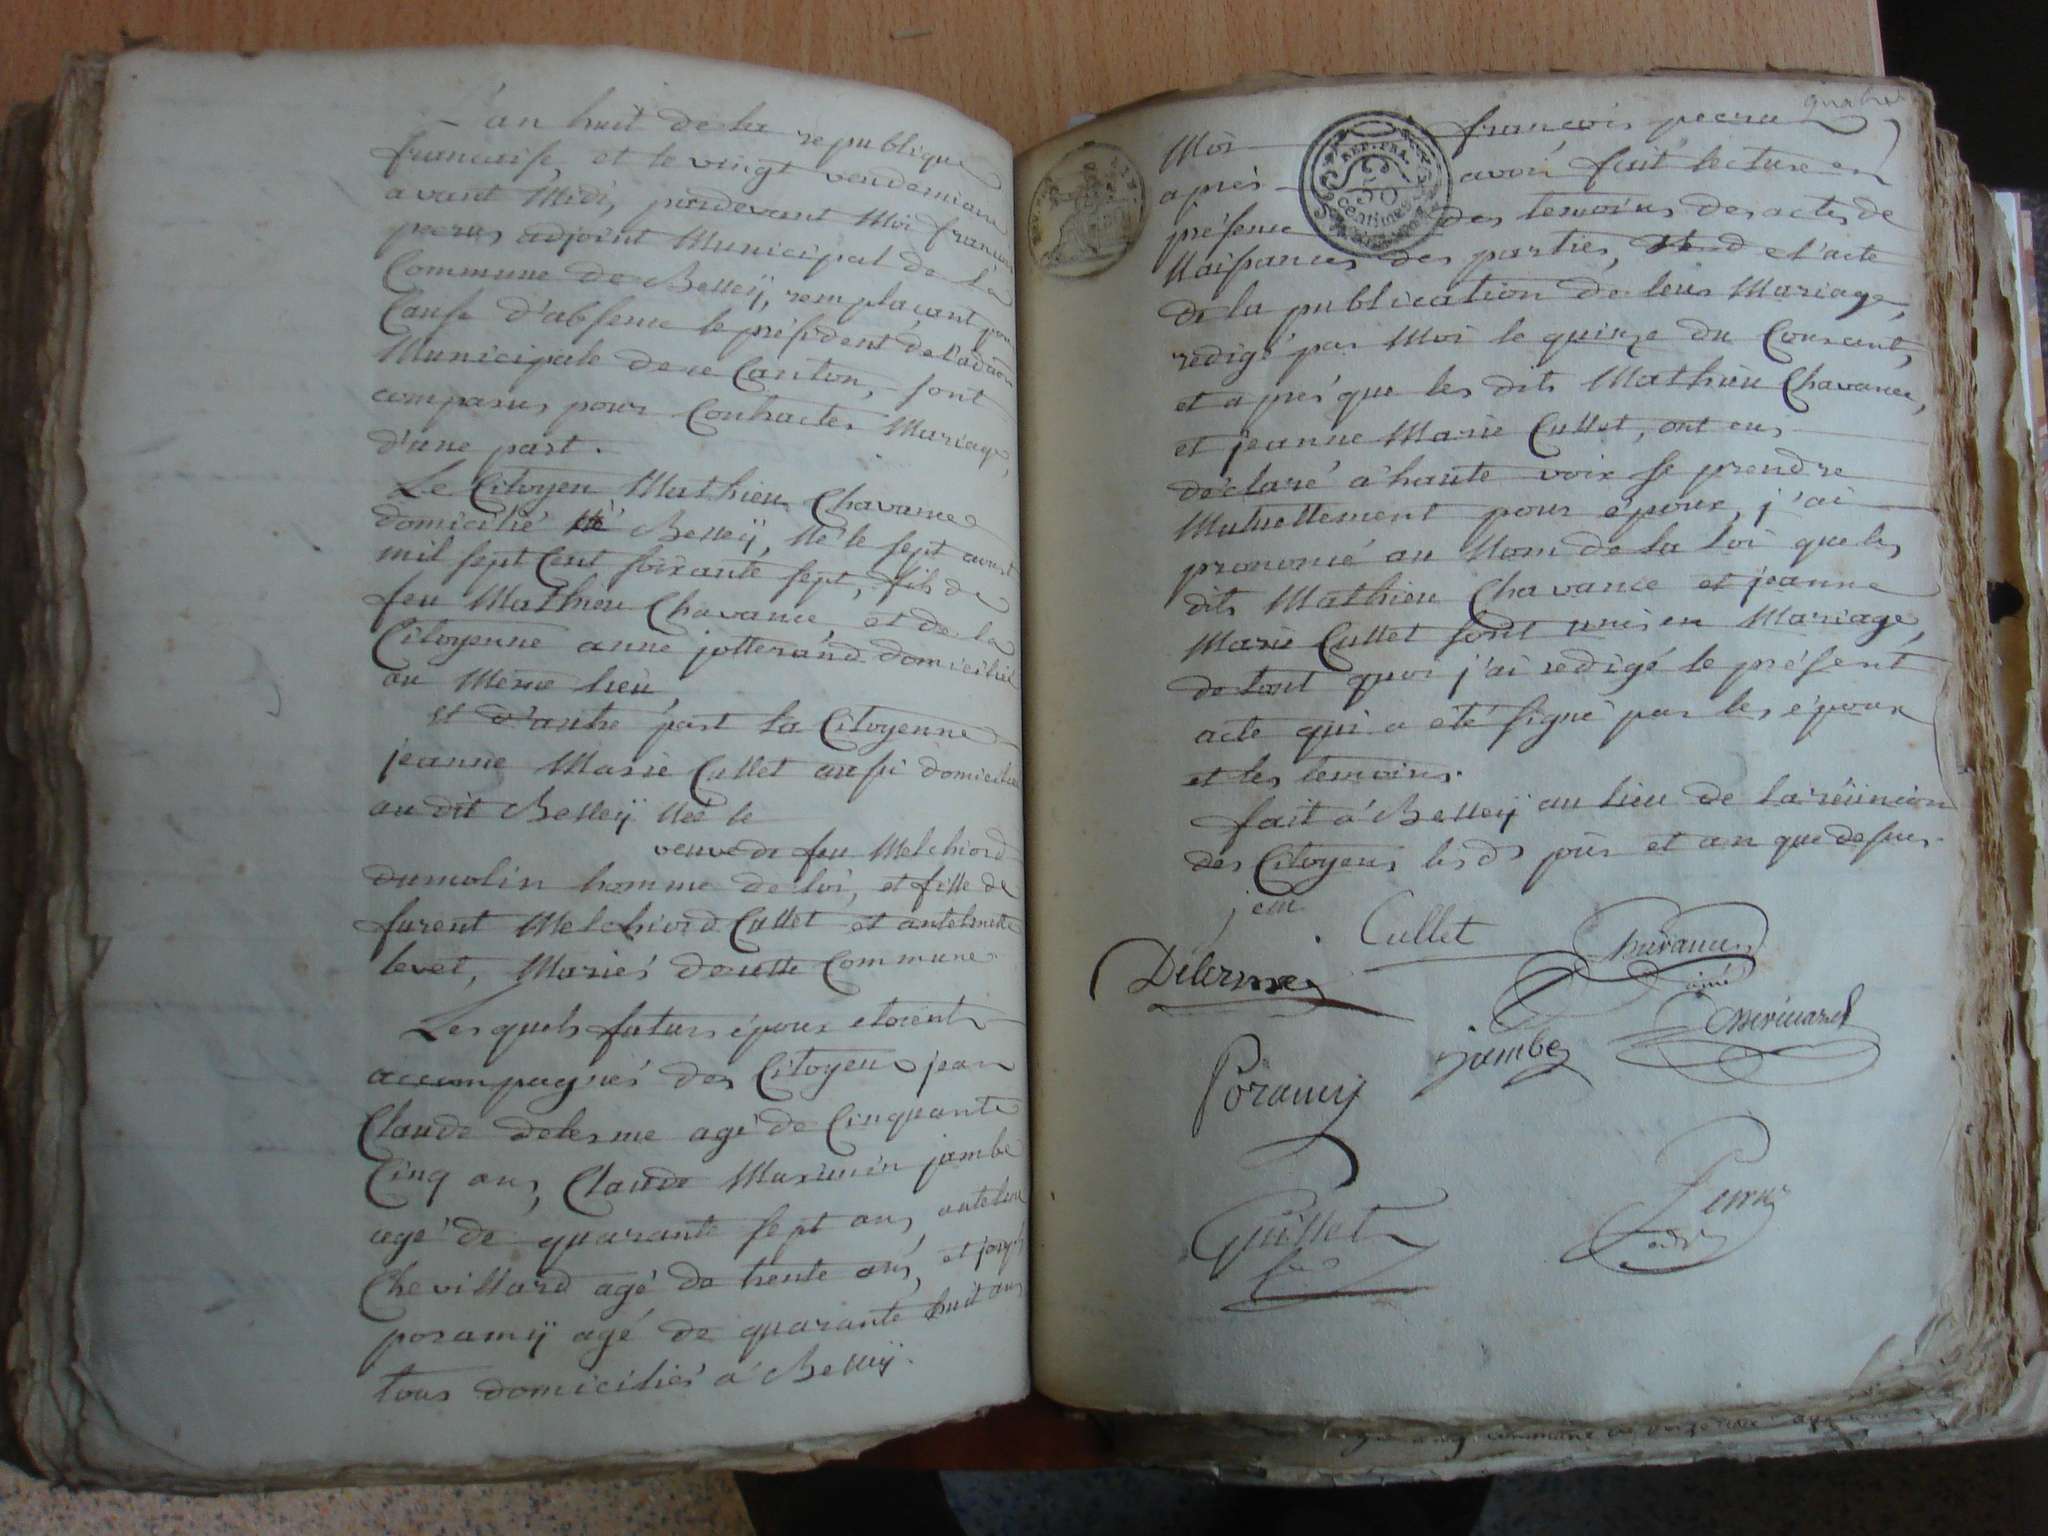 L'an huit de la republique
francaise, et le vingt vendemiaire
avant Midi, pardevant Moi francois
adjoint Municipal de la
Commune de Belleÿ, remplaçant pour
Cause d'absence le président de l'adaon
Municipale de ce Canton, sont
comparus pour Contracter Mariage,
d'une part.
Le Citoyen Mathieu Chavance
domicilié Belleÿ, Né le sept aoust
mil sept Cent soixante sept, fils de
feu Mathieu Chavance, et de la
Citoyenne anne jotterand domiciliés
au Méme lieu,
et d'autre part la Citoyenne
jeanne Marie Cullet aussi domiciliée
au dit Belleÿ Née le
veuve de feu Melchiord
dumolin homme de loi, et fille de
furent Melchiord Cullet et antelmette
levet, Mariés de cette Commune.
Lesquels futurs époux etoient
accompagnés des Citoyens jean
Claude delerme agé de Cinquante
Cinq ans, Claude Maximin jambe
agé de quarante sept ans, antelme
Chevillard agé de trente ans, et joseph
poramÿ agé de quarante huit ans
tous domiciliés à Belleÿ.
REP. FRA.
50
Centimes
Moi francois
apres avoir fait lecture en
présence des temoins des actes de
Naissances des parties, et de l'acte
de la publication de leur Mariage,
redigé par Moi le quinze du Courant,
et aprés que les dits Mathieu Chavance,
et jeanne Marie Cullet, ont eus
déclaré à haute voix se prendre
Mutuellement pour époux, j'ai
prononcé au Nom de la loi que les
dits Mathieu Chavance et jeanne
Marie Cullet sont unis en Mariage,
de tout quoi j'ai redigé le présent
acte qui a été signé par les époux
et les temoins.
fait à Belleÿ au lieu de la réünion
des Citoyens lesd jour et an que dessus.
Cullet Chavance
Delerme ainé
jambe
Poramÿ
Guillet